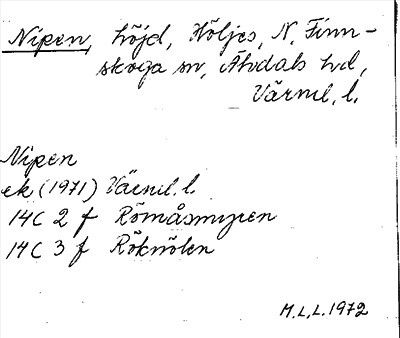 Nipen, höjd, Höljes, N. Finn-
skoga sn, Älvdals hd,
Värml. l.
Nipen
ek (1971) Värml. l.
14C 2 f Römåsmyren
14C 3 f Röknölen
M.L.L. 1972